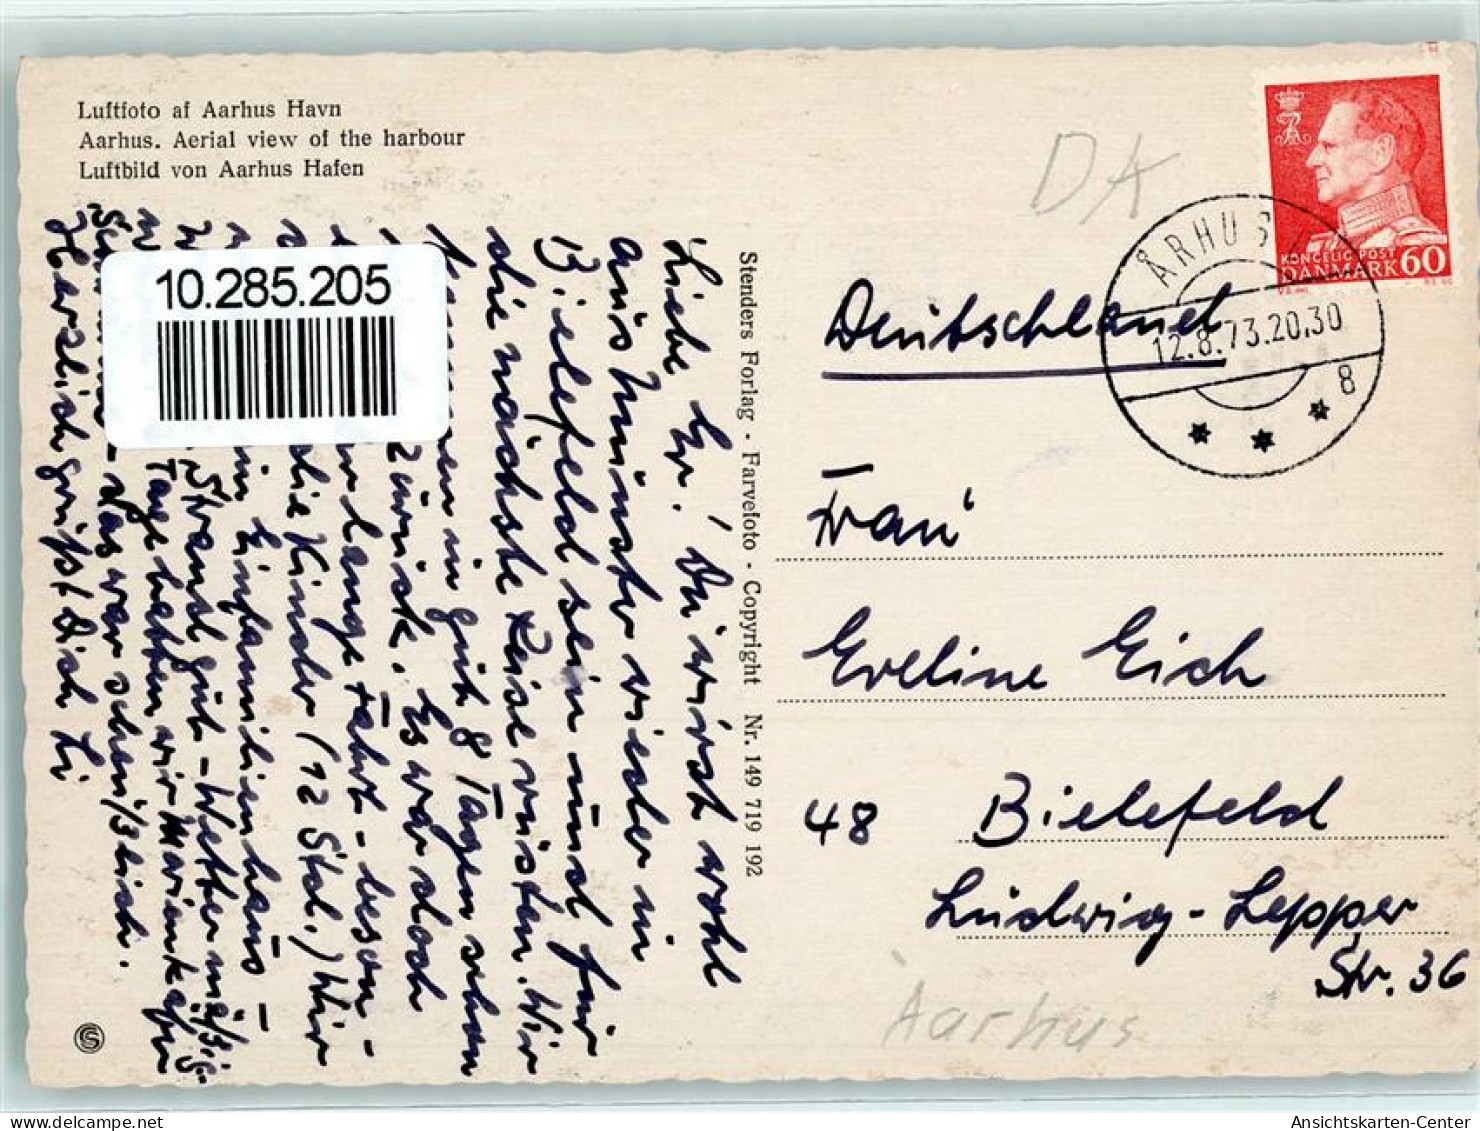 Luftfoto af Aarhus Havn
Aarhus. Aerial view of the harbour
Luftbild von Aarhus Hafen
10.285.205
Stenders Forlag - Farvefoto - Copyright Nr. 149 719 192
Liebe Ev.! Du wirst wohl
aus Münster wieder in
Bielefeld sein und für
die nächste Reise rüsten. Wir
kommen in gut 8 Tagen schon
zurück. Es war doch
lange Fahrt - beson -
die Kinder (12 Std.) Wir
Einfamilienhaus -
Strand gut - Wetter mäßig
Tage hatten wir Marienkäfer
das war scheußlich.
Herzlich grüßt Dich Li
DK
KONGELIG POST
DANMARK 60
ÅRHUS
12.8.73.20.30
8
Deutschland
Frau
Eveline Eich
48 Bielefeld
Ludwig-Lepper
Str. 36
Aarhus
oldthing.de
Ansichtskarten-Center